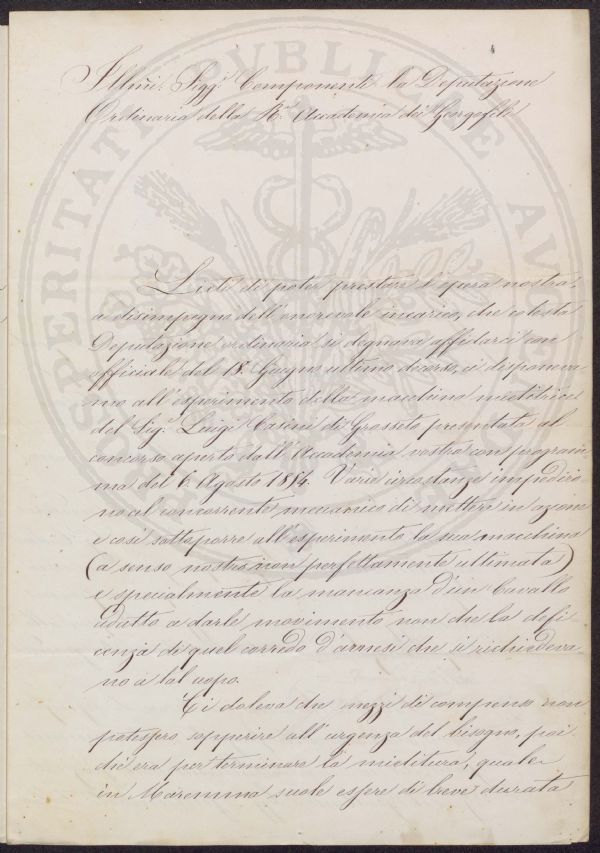 Illmi. Sigg.i Componenti la Deputazione
Ordinaria della R.a Accademia dei Georgofili
Lieti di poter prestar l'opera nostra
a disimpegno dell'onorevole incarico, che cotesta
Deputazione ordinaria si degnava affidarci con
officiale del 18. Giugno ultimo decorso, ci dispuneva
mo all'esperimento della macchina mietitrice
del Sig.r Luigi Casini di Grosseto presentata al
concorso aperto dall'Accademia vostra con program
ma del 6. Agosto 1854. Varie circostanze impediro
no al concorrente meccanico di mettere in azione
e così sottoporre all'esperimento la sua macchina
(a senso nostro non perfettamente ultimata)
e specialmente la mancanza d'un Cavallo
adatto a darle movimento non che la defi
cienza di quel corredo d'arnesi che si richiedeva
no a tal uopo.
Ci doleva che mezzi di compenso non
potessero sopperire all'urgenza del bisogno, poi
chè era per terminare la mietitura, quale
in Maremma suole essere di breve durata
PROSPERITATI PVBLICAE AVGENDAE